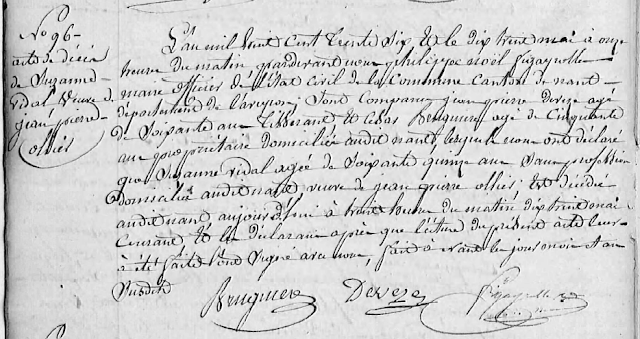 No 96
acte de décès
de Suzanne
vidal veuve de
jean pierre
ollier
L'an mil huit cent trente Six et le dix huit mai à onze
heures du matin pardevant nous philippe noël
maire officier de l'état civil de la Commune Canton de nant
département de l'aveyron, Sont Comparus jean pierre Deveze agé
de Soixante ans Tisserand et Bruguier agé de Cinquante
ans propriétaire domiciliés audit nant, lesquels nous ont déclaré
que Suzanne vidal agée de Soixante quinze ans Sans profession
Domiciliée audit nant veuve de jean pierre ollier, Est décédée
audit nant aujourd'hui à huit heures du matin dix huit mai
Courant Et les déclarans après que lecture du présent acte leur
a été faite l'ont Signé avec nous, fait à nant les jour mois et an
Susdits
Bruguier Deveze